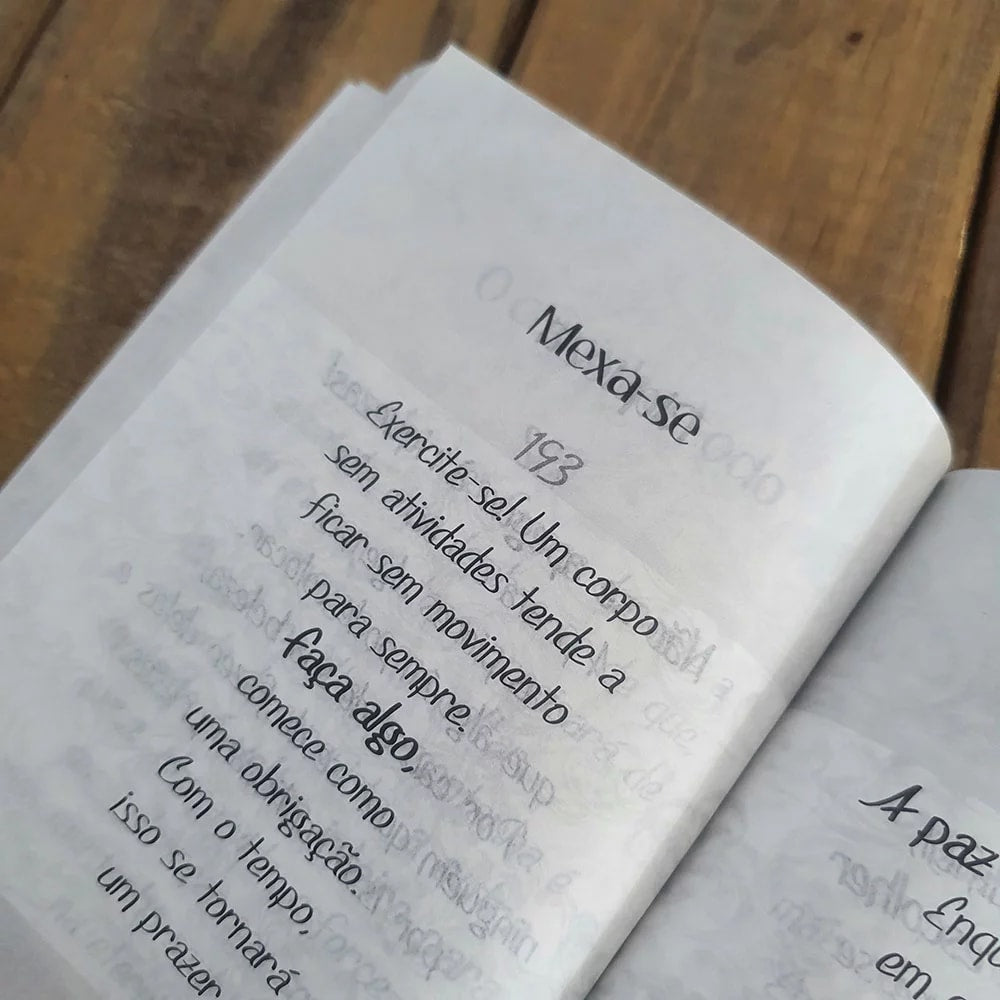 Mexa-se
193
Exercite-se! Um corpo
sem atividades tende a
ficar sem movimento
para sempre.
faça algo,
comece como
uma obrigação.
Com o tempo,
isso se tornará
um prazer
A paz
Enqu
em